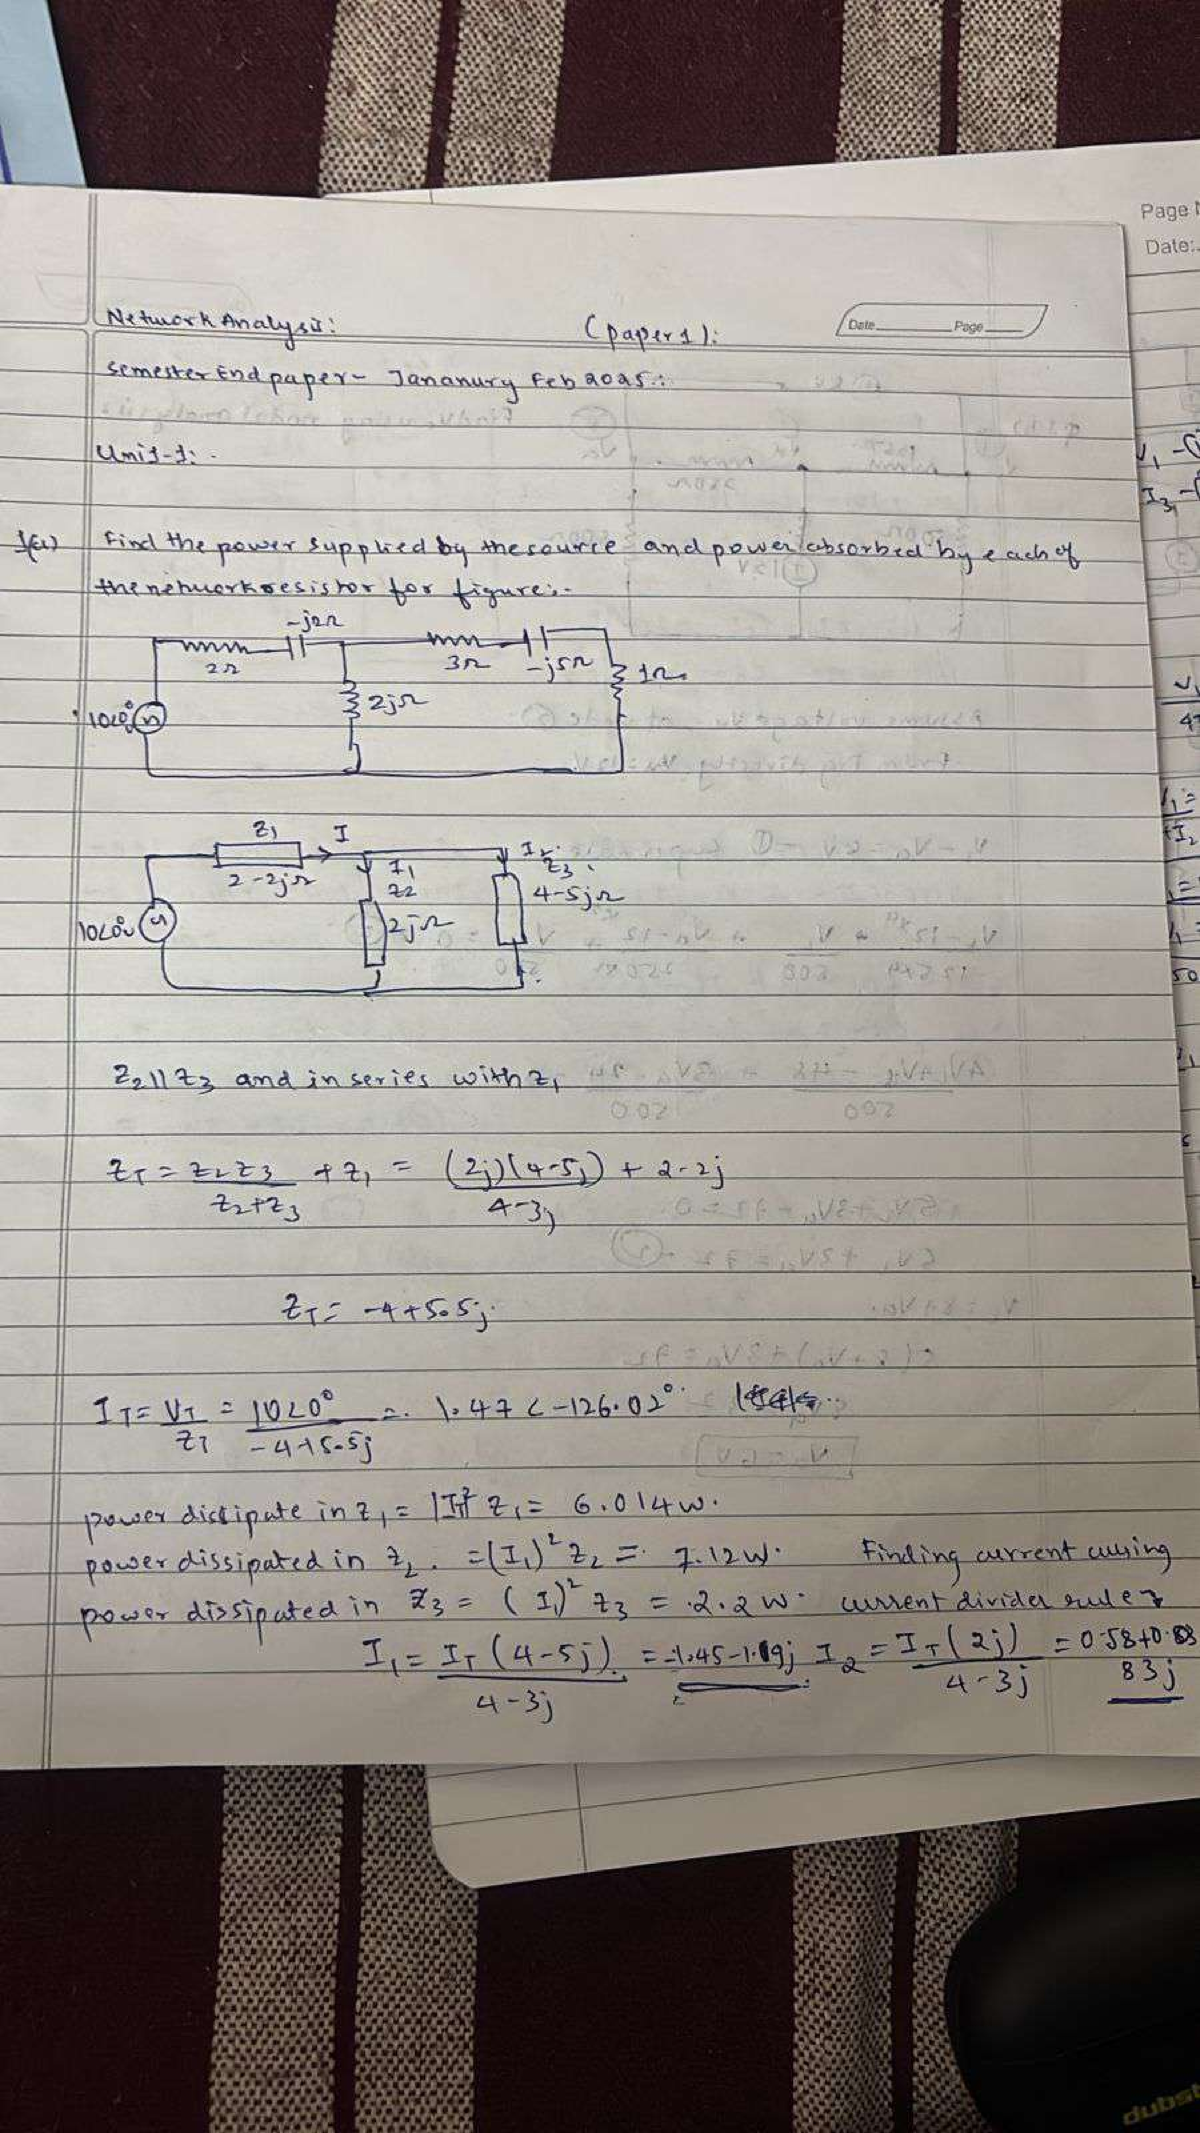 Page
Date:
Network Analysis:
(paper 1):
Date Page
Semester End paper - Jananury Feb 2025:
Unit-1:-
1(a) Find the power supplied by the source and power absorbed by each of
the network resistor for figure:-
-j2Ω
2Ω
3Ω
-j5Ω
1Ω
2jΩ
10∠0°
Z1 I
2-2jΩ
I1
Z2
2jΩ
I2
Z3
4-5jΩ
10∠0°v
Z2||Z3 and in series with Z1
ZT = Z2Z3/Z2+Z3 + Z1 = (2j)(4-5j)/4-3j + 2-2j
ZT = -4+5.5j
IT = VT/ZT = 10∠0°/-4+5.5j = 1.47<-126.02°
power dissipate in Z1 = |IT|² Z1 = 6.014w.
power dissipated in Z2. = (I1)² Z2 = 7.12w. Finding current cusing
power dissipated in Z3 = (I1)² Z3 = 2.2w. current divider rule
I1 = IT(4-5j)/4-3j = -1.45-1.19j I2 = IT(2j)/4-3j = 0.58+0.83
83j
dubst